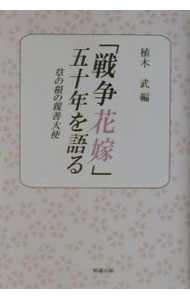 植木 武 編
「戦争花嫁」
五十年を語る
草の根の親善大使
勉誠出版